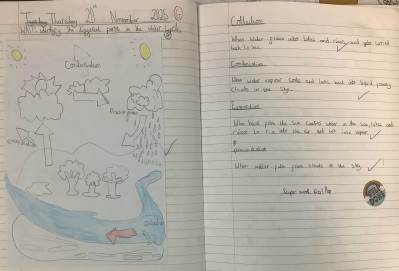 Thursday 20th November 2025
WALT: identify the different parts in the water cycle
Condensation
Precipitation
evaporation
collection
Collection
When water flows into lakes and rivers and gets carried
back to sea.
Condensation
When water vapour cools and turns back into liquid forming
clouds in the sky.
Evaporation
When heat from the sun causes water in the sea, lakes and
rivers to rise into the air and turn into vapour
precipitation
When water falls from clouds in the sky.
Super work